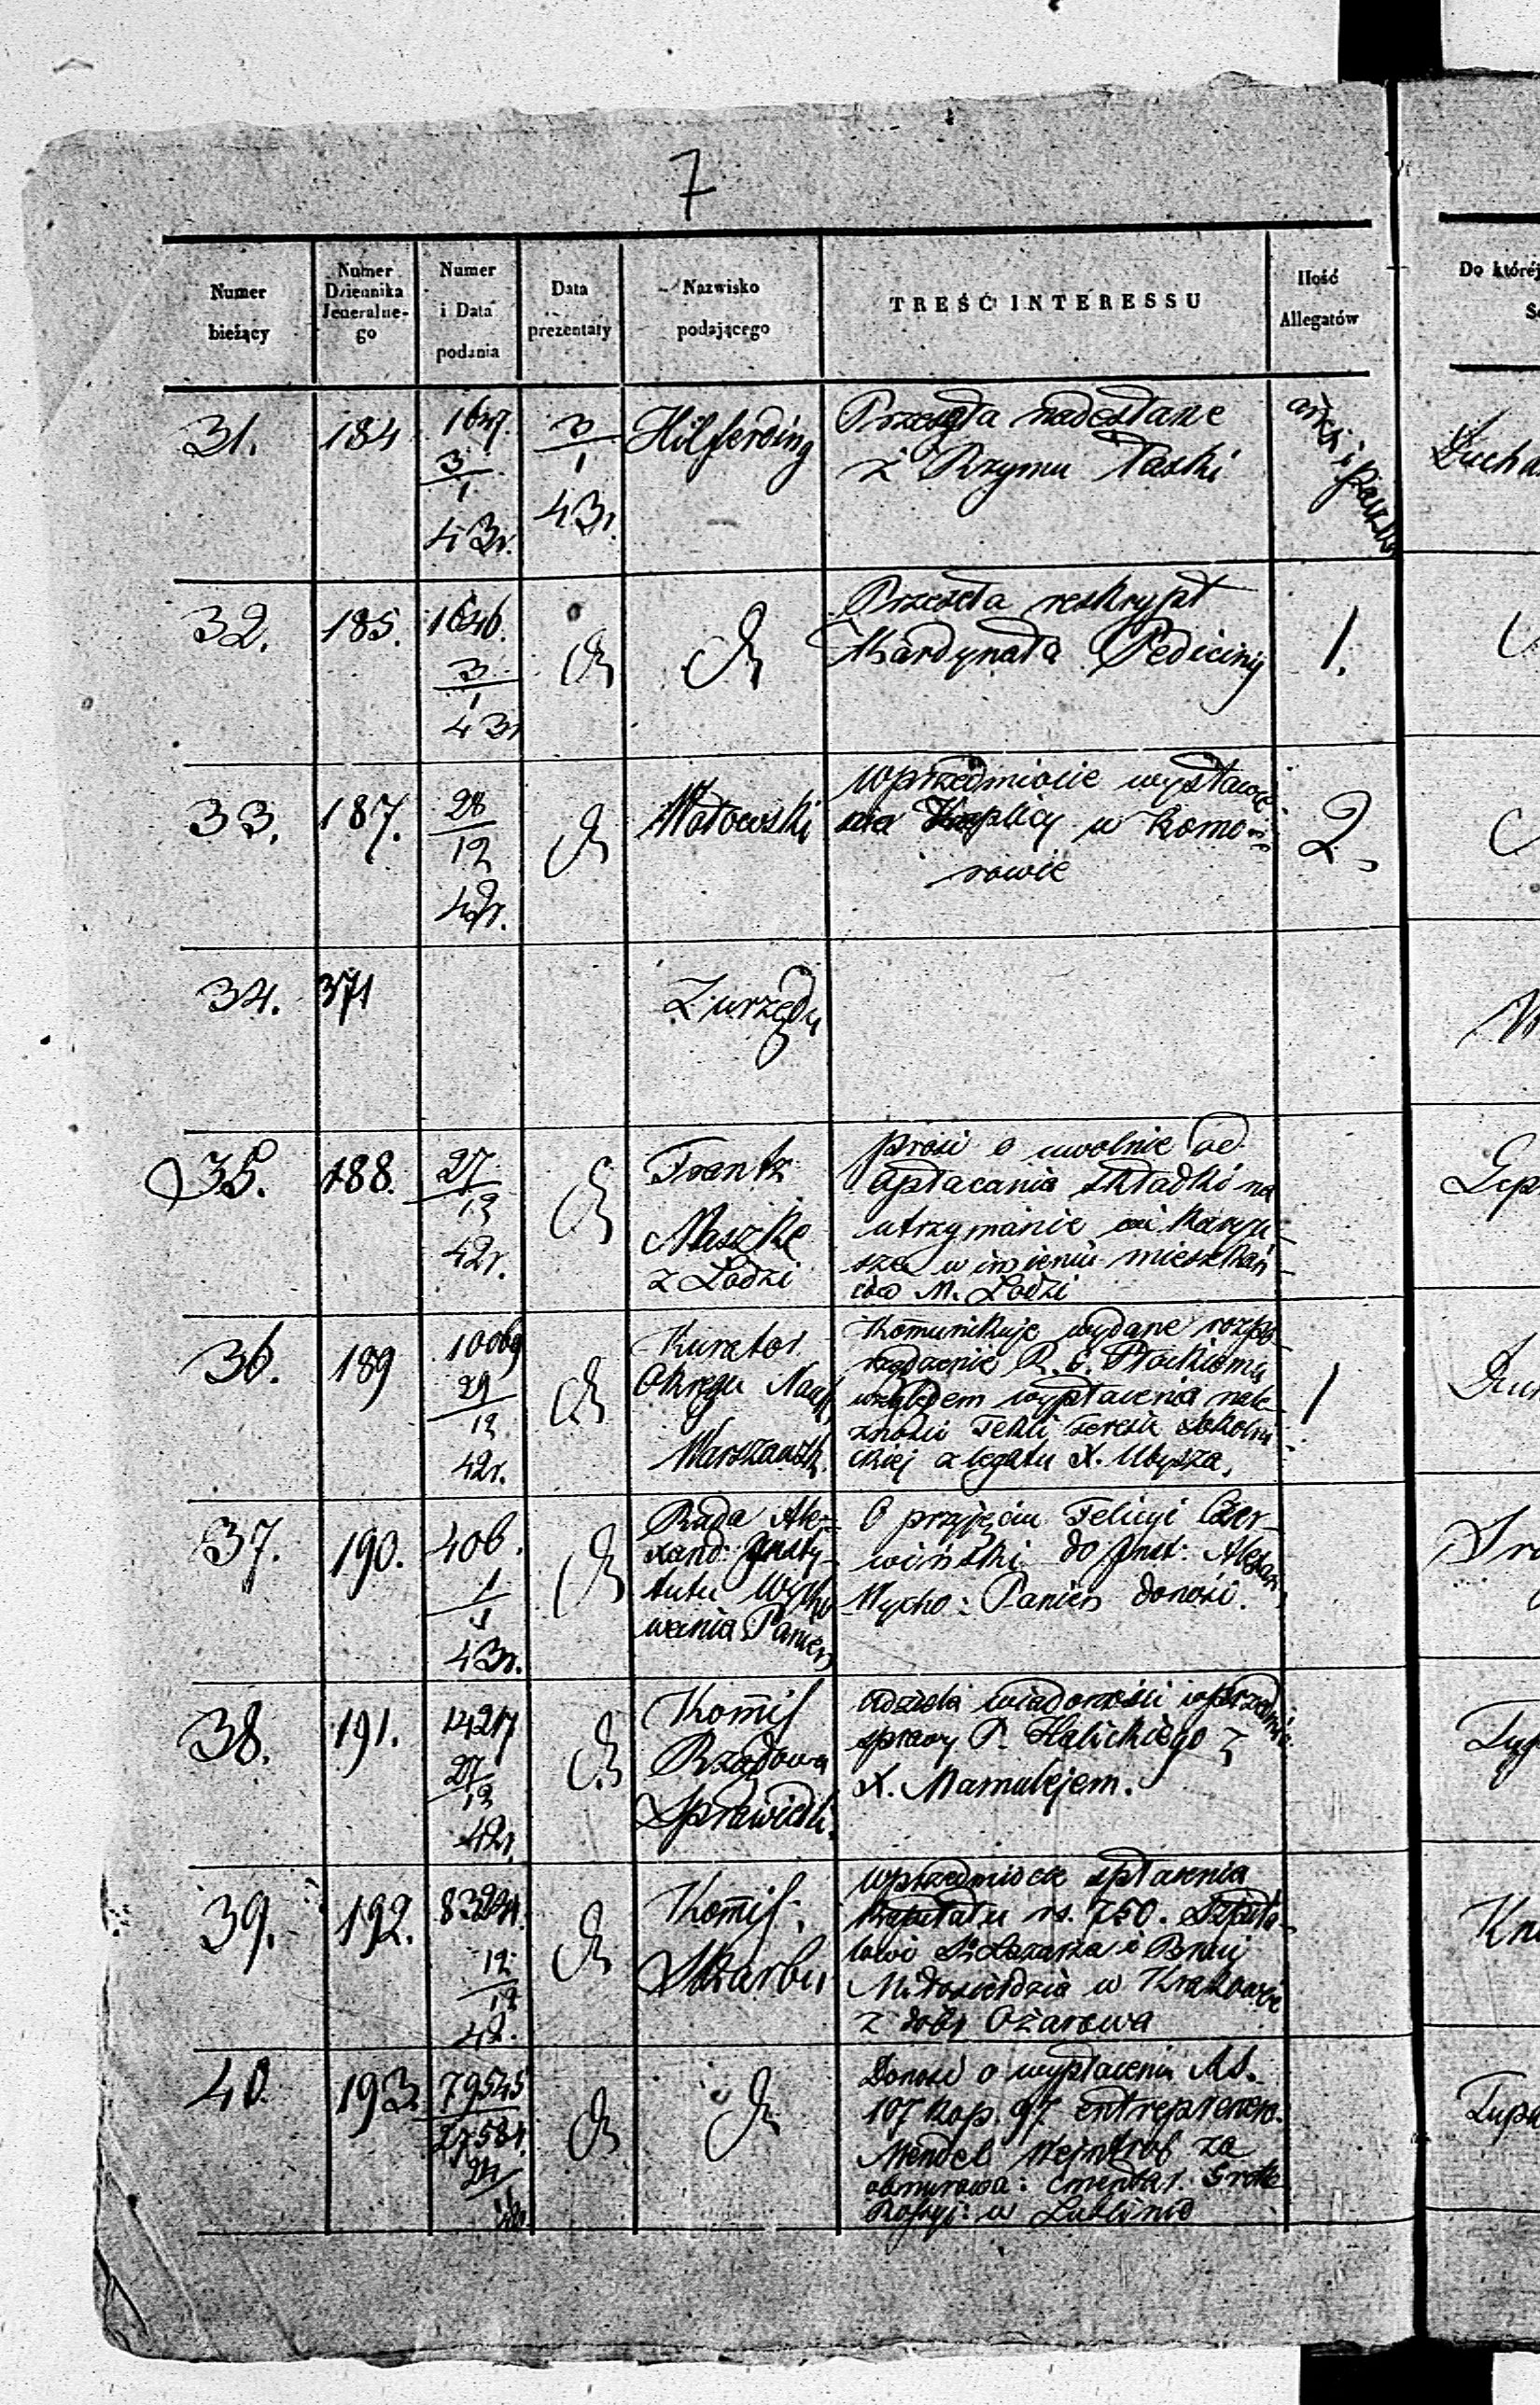 7
Numer bieżący
Numer Dziennika Jeneralnego
Numer i Data podania
Data prezentaty
Nazwisko podającego
TREŚĆ INTERESSU
Ilość Allegatów
Do któréj
31. 184 1647. 3/1 43r. 3/1 43r. Hilferding
Przesyła nadesłane
z Rzymu Łaski
32. 185. 1646. 3/1 43r
Przeseła reskrypt
Kardynała Pediciny
1.
33. 187. 28/12 42r. Wołowski
Wprzedmiocie wystawie
nia Kaplicy w Komo-
rowie
2
34. 371 Z urzędu
35. 188. 27/12 42r.
Frantz
Maszke
z Łodzi
prosi o uwolnie od
opłacania składki na
utrzymanie wikaryu
sza w imieniu mieszkań
ców M. Łodzi
36. 189 10069 29/12 42r.
Kurator
Okręgu Nauk
Warszawsk.
Komunikuje wydane rozpo-
rządzenie R. G. Płockiemu
względem wypłacenia nale-
żności Tekli Teresie Sokolni
ckiej z legatu X. Ubysza.
1
37. 190. 406. 1/1 43r.
Rada Ale-
xand: Insty-
tutu Wycho
wania Panien
O przyjęciu Felicyi Czer-
wińskiej do Inst: Alexan.
Wycho: Panien donosi.
38. 191. 14217 27/12 42r.
Komis
Rządowa
Sprawiedli.
Udziela wiadomości wprzedmio
sprawy P. Halickiego z
X. Mamulejem.
39. 192. 12/12 42.
Komis:
Skarbu
Wprzedmiocie spłacenia
Kapitału rs. 750. Szpita-
lowi S. Łazarza i Braci
Miłosierdzia w Krakowie
z dóbr Ożarowa
40. 193. 79545
Donosi o wypłaceniu RS.
107 kop. 97 entreprenero.
Mendel Wejntrob za
obmurowa: cmentar. Greko
Rossyj: w Lublinie